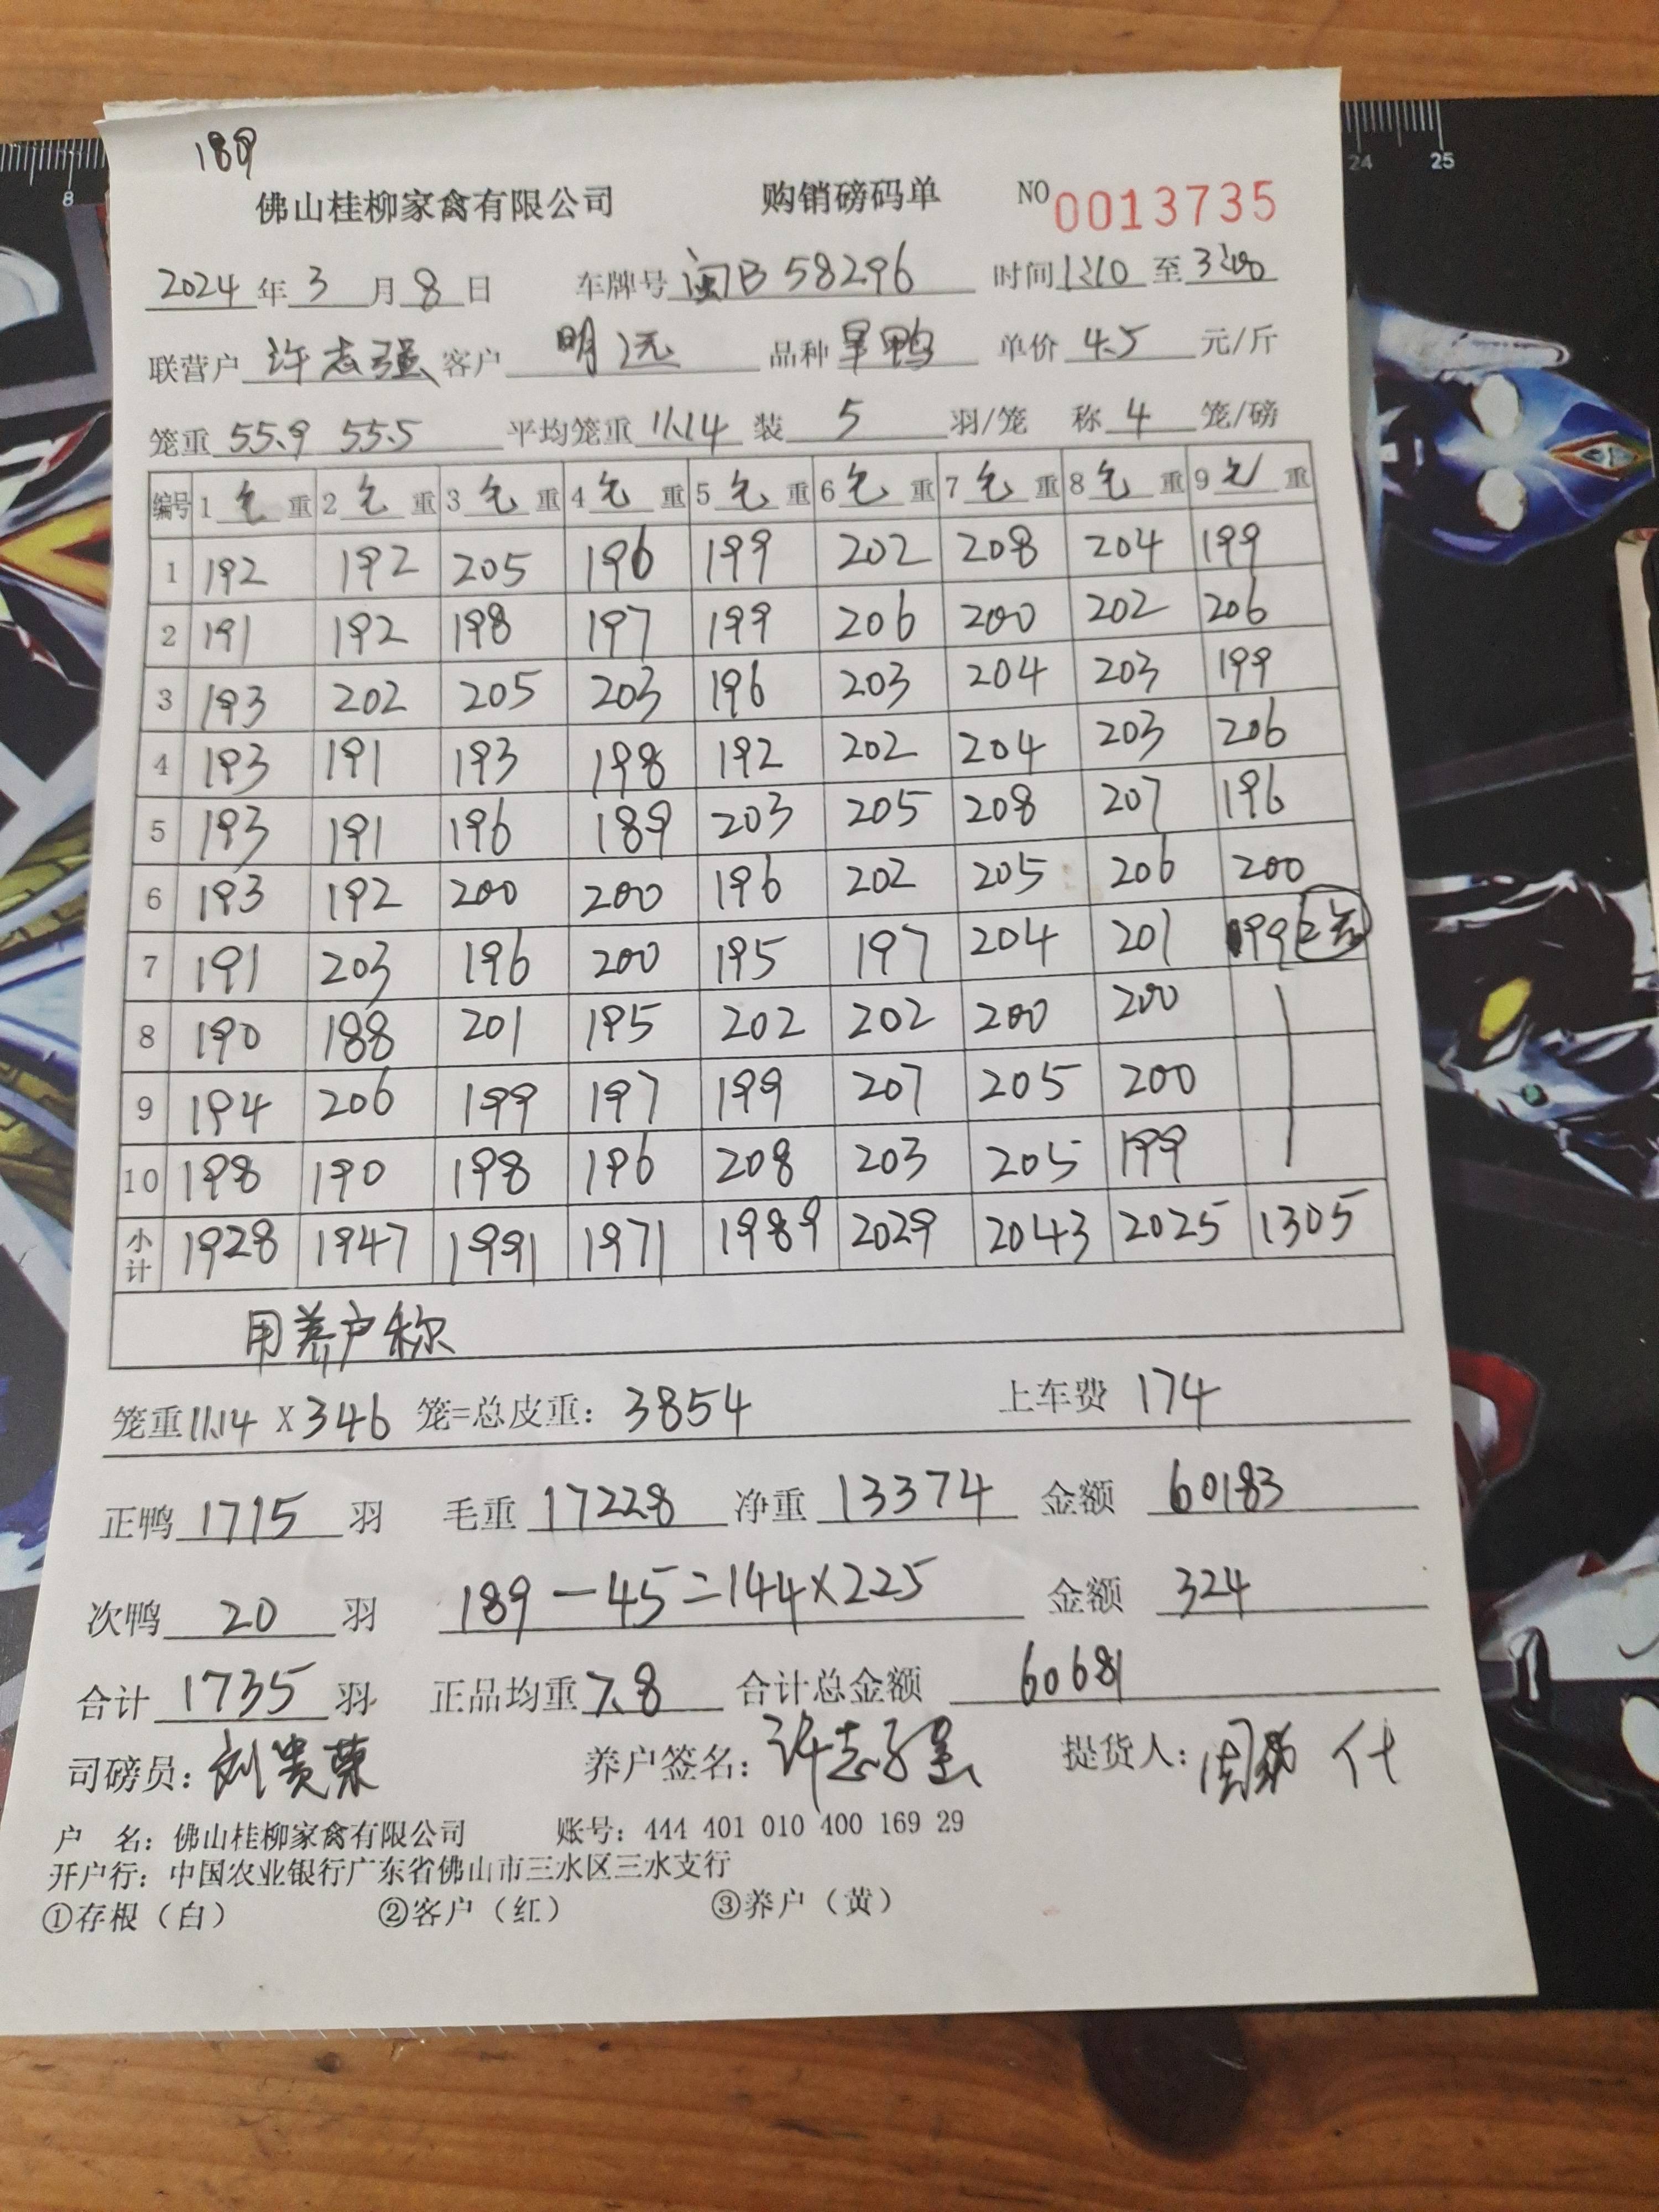 189
佛山桂柳家禽有限公司 购销磅码单 NO 0013735
2024 年 3 月 8 日 车牌号 闽B 58296 时间 1:10 至 3:00
联营户 许志强 客户 明远 品种 旱鸭 单价 4.5 元/斤
笼重 55.9 55.5 平均笼重 11.14 装 5 羽/笼 称 4 笼/磅
编号 1 毛 重 2 毛 重 3 毛 重 4 毛 重 5 毛 重 6 毛 重 7 毛 重 8 毛 重 9 毛 重
1 192 192 205 196 199 202 208 204 199
2 191 192 198 197 199 206 200 202 206
3 193 202 205 203 196 203 204 203 199
4 193 191 193 198 192 202 204 203 206
5 193 191 196 189 203 205 208 207 196
6 193 192 200 200 196 202 205 206 200
7 191 203 196 200 195 197 204 201 99 2笼
8 190 188 201 195 202 202 200 200
9 194 206 199 197 199 207 205 200
10 198 190 198 196 208 203 205 199
小计 1928 1947 1991 1971 1989 2029 2043 2025 1305
用养户称
笼重 11.14 X 346 笼=总皮重: 3854 上车费 174
正鸭 1715 羽 毛重 17228 净重 13374 金额 60183
次鸭 20 羽 189-45=144×2.25 金额 324
合计 1735 羽 正品均重 7.8 合计总金额 60681
司磅员: 刘贵荣 养户签名: 许志强 提货人: 代
户 名: 佛山桂柳家禽有限公司 账号: 444 401 010 400 169 29
开户行: 中国农业银行广东省佛山市三水区三水支行
①存根（白） ②客户（红） ③养户（黄）
8 24 25